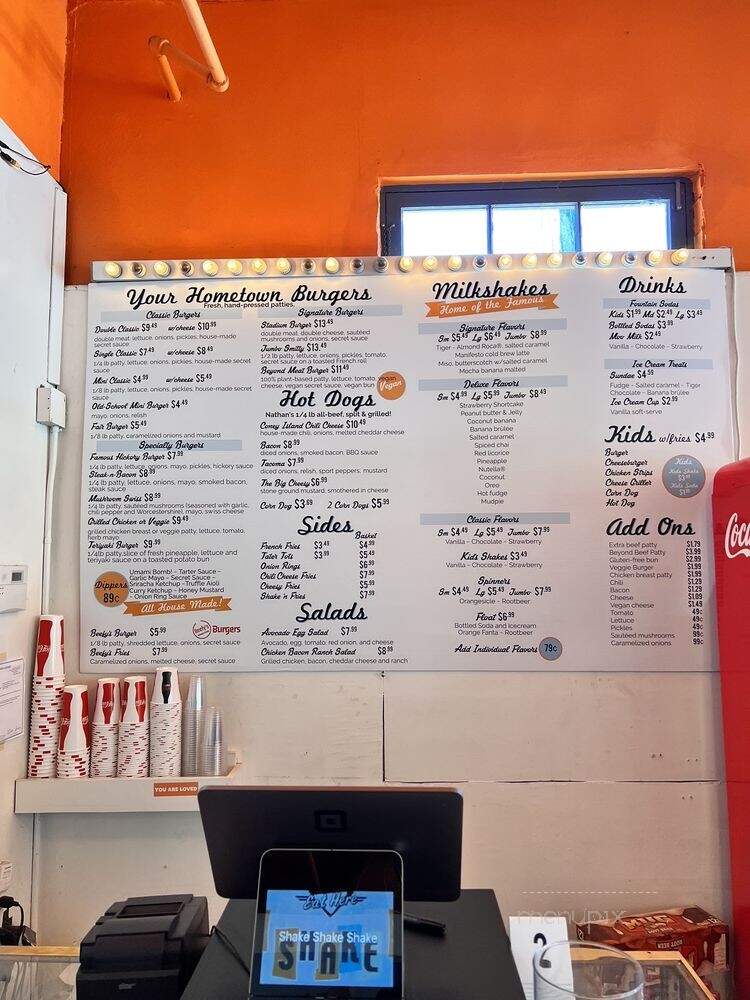 Your Hometown Burgers
Fresh, hand-pressed patties.
Classic Burgers
Double Classic $9.49 w/cheese $10.99
double meat, lettuce, onions, pickles, house-made
secret sauce
Single Classic $7.49 w/cheese $8.49
1/4 lb patty, lettuce, onions, pickles, house-made secret
sauce
Mini Classic $4.99 w/cheese $5.49
1/8 lb patty, lettuce, onions, pickles, house-made secret
sauce
Old-School Mini Burger $4.49
mayo, onions, relish
Fair Burger $5.49
1/8 lb patty, caramelized onions and mustard
Specialty Burgers
Famous Hickory Burger $7.99
1/4 lb patty, lettuce, onions, mayo, pickles, hickory sauce
Steak-n-Bacon $8.99
1/4 lb patty, lettuce, onions, mayo, smoked bacon,
steak sauce
Mushroom Swiss $8.99
1/4 lb patty, sauteed mushrooms (seasoned with garlic,
chili pepper and Worcestershire), mayo, swiss cheese
Grilled Chicken or Veggie $9.49
grilled chicken breast or veggie patty, lettuce, tomato,
herb mayo
Teriyaki Burger $9.99
1/4lb patty,slice of fresh pineapple, lettuce and
teriyaki sauce on a toasted potato bun
Dippers
89¢
Umami Bomb! - Tarter Sauce -
Garlic Mayo - Secret Sauce -
Sriracha Ketchup -Truffle Aioli
Curry Ketchup - Honey Mustard
- Onion Ring Sauce
All House Made!
Beefy's Burger $5.99
Burgers
1/8 lb patty, shredded lettuce, onions, secret sauce
Beefy's Fries $7.99
Caramelized onions, melted cheese, secret sauce
Signature Burgers
Stadium Burger $13.49
double meat, double cheese, sautéed
mushrooms and onions, secret sauce
Jumbo Smitty $13.49
1/2 lb patty, lettuce, onions, pickles, tomato,
secret sauce on a toasted French roll
Beyond Meat Burger $11.49
100% plant-based patty, lettuce, tomato,
cheese, vegan secret sauce, vegan bun
Vegan
Hot Dogs
Nathan's 1/4 lb all-beef, split & grilled!
Coney Island Chili Cheese $10.49
house-made chili, onions, melted cheddar cheese
Bacon $8.99
diced onions, smoked bacon, BBQ sauce
Tacoma $7.99
diced onions, relish, sport peppers, mustard
The Big Cheesy $6.99
stone ground mustard, smothered in cheese
Corn Dog $3.69 2 Corn Dogs $5.99
Sides
Basket
French Fries $3.49 $4.99
Tater Tots $3.99 $5.49
Onion Rings $6.99
Chili Cheese Fries $7.99
Cheesy Fries $5.99
Shake 'n Fries $7.99
Salads
Avocado Egg Salad $7.99
Avocado, egg, tomato, red onion, and cheese
Chicken Bacon Ranch Salad $8.99
Grilled chicken, bacon, cheddar cheese and ranch
Milkshakes
Home of the Famous
Signature Flavors
Sm $5.49 Lg $6.49 Jumbo $8.99
Tiger - Almond Roca®, salted caramel
Manifesto cold brew latte
Miso, butterscotch w/salted caramel
Mocha banana malted
Deluxe Flavors
Sm $4.99 Lg $5.99 Jumbo $8.49
Strawberry Shortcake
Peanut butter & Jelly
Coconut banana
Banana brulée
Salted caramel
Spiced chai
Red licorice
Pineapple
Nutella®
Coconut
Oreo
Hot fudge
Mudpie
Classic Flavors
Sm $4.49 Lg $5.49 Jumbo $7.99
Vanilla - Chocolate - Strawberry
Kids Shakes $3.49
Vanilla - Chocolate - Strawberry
Spinners
Sm $4.49 Lg $5.49 Jumbo $7.99
Orangesicle - Rootbeer
Float $6.99
Bottled Soda and icecream
Orange Fanta - Rootbeer
Add Individual Flavors 79¢
Drinks
Fountain Sodas
Kids $1.99 Md $2.49 Lg $3.49
Bottled Sodas $3.99
Moo Milk $2.49
Vanilla - Chocolate - Strawberry
Ice Cream Treats
Sundae $4.59
Fudge - Salted caramel - Tiger
Chocolate - Banana brulée
Ice Cream Cup $2.99
Vanilla soft-serve
Kids w/fries $4.99
Burger
Cheeseburger
Chicken Strips
Cheese Griller
Corn Dog
Hot Dog
Kids
Kids Shake
$3.49
Kids Soda
Add Ons
Extra beef patty $1.79
Beyond Beef Patty $3.99
Gluten-free bun $2.99
Veggie Burger $1.99
Chicken breast patty $1.99
Chili $1.29
Bacon $1.29
Cheese $1.09
Vegan cheese $1.49
Tomato 49¢
Lettuce 49¢
Pickles 49¢
Sautéed mushrooms 99¢
Caramelized onions 99¢
YOU ARE LOVED
Eat Here
Shake Shake Shake
SHAKE
2
MUG
ROOT BEER
menupix